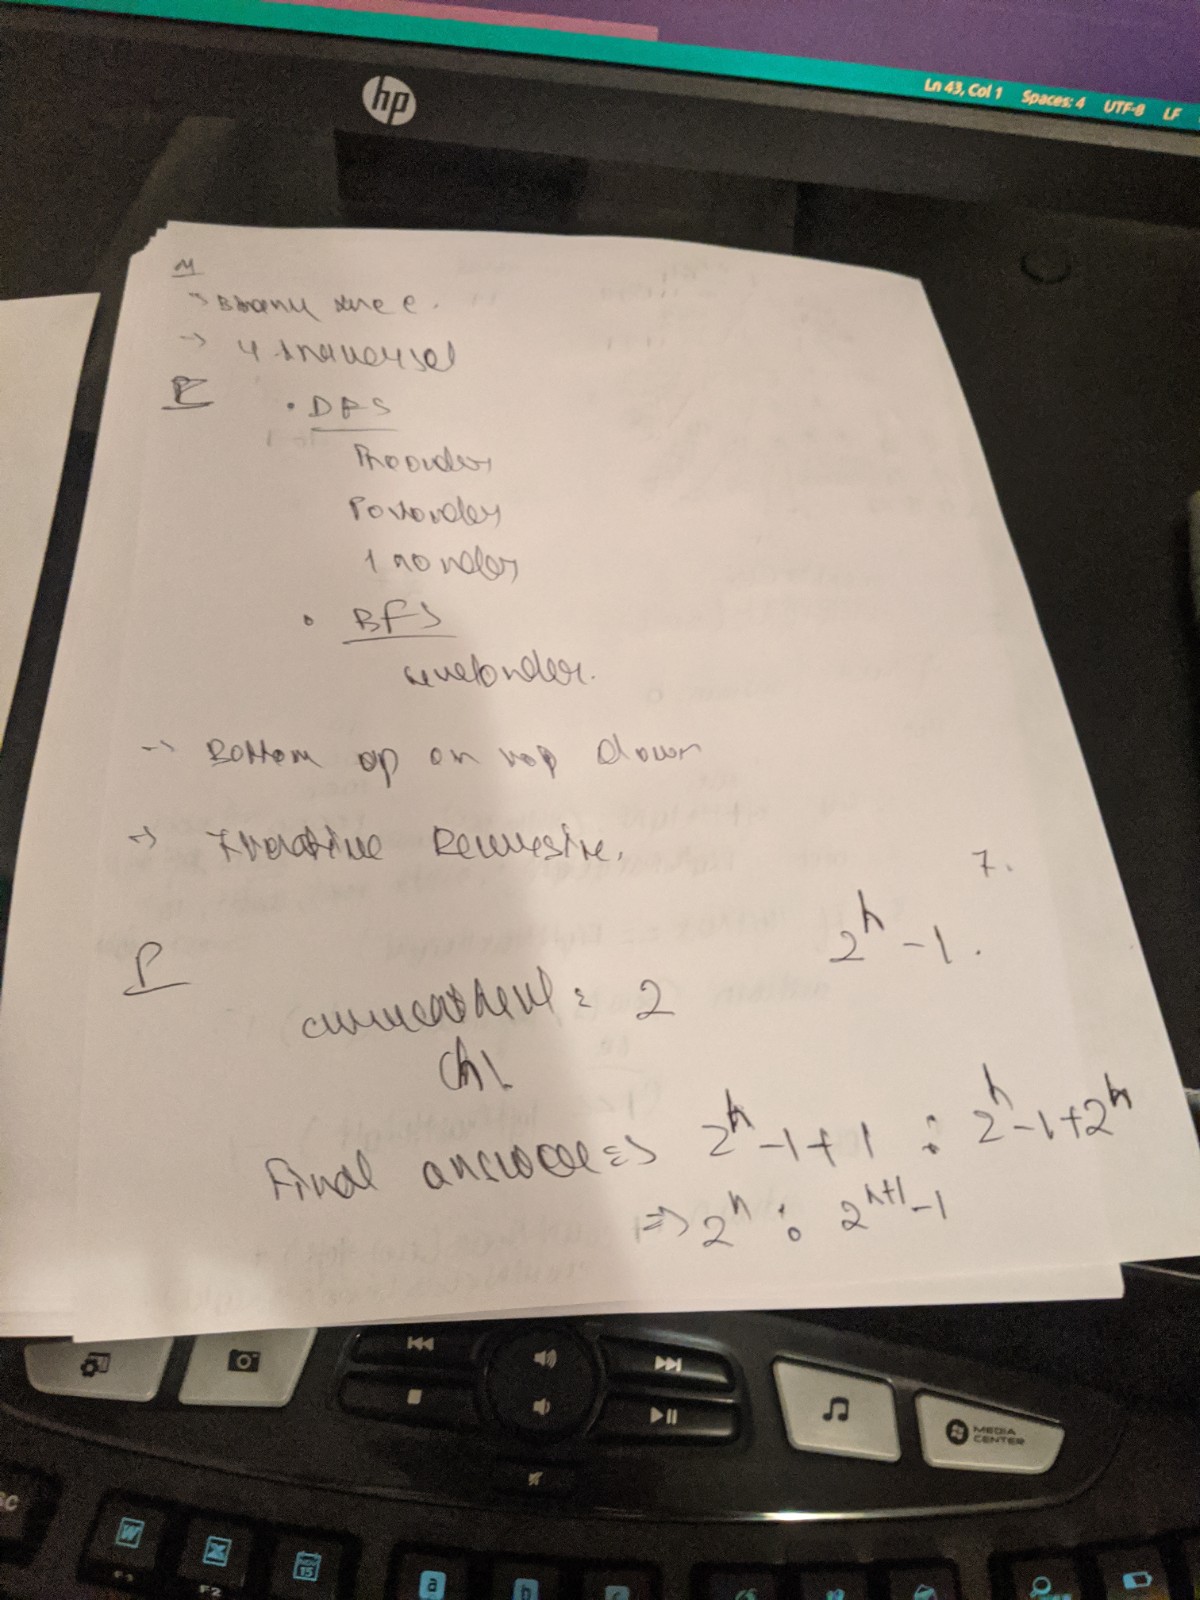 hp
Ln 43, Col 1 Spaces: 4 UTF-8 LF
M
→ Binary tree.
→ 4 traversal
E
• DFS
Preorder
Postorder
Inorder
• BFS
levelorder.
→ Bottom up or top down
→ Iterative Recursive.
7.
2^h - 1.
P
currentlevel : 2
Final answer => 2^h - 1 + 1 : 2^h - 1 + 2^h
=> 2^h : 2^h+1 - 1
MEDIA
CENTER
W
X
NOV
15
a
b
c
F1
F2